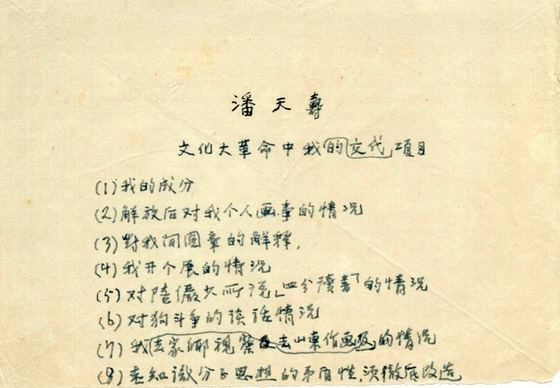 潘天壽
文化大革命中我的交代項目
(1)我的成分
(2)解放后对我个人画章的情况
(3)對我闲圖章的解釋,
(4)我开个展的情况
(5)对陸儼少所说「四分读书」的情况
(6)对狗斗争的谈话情况
(7)我去家鄉視察去山東作画及的情况
(8)未知识分子思想的矛盾性,须徹底改造